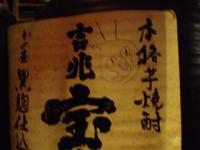 本格芋焼酎
吉兆宝
黒麹仕込